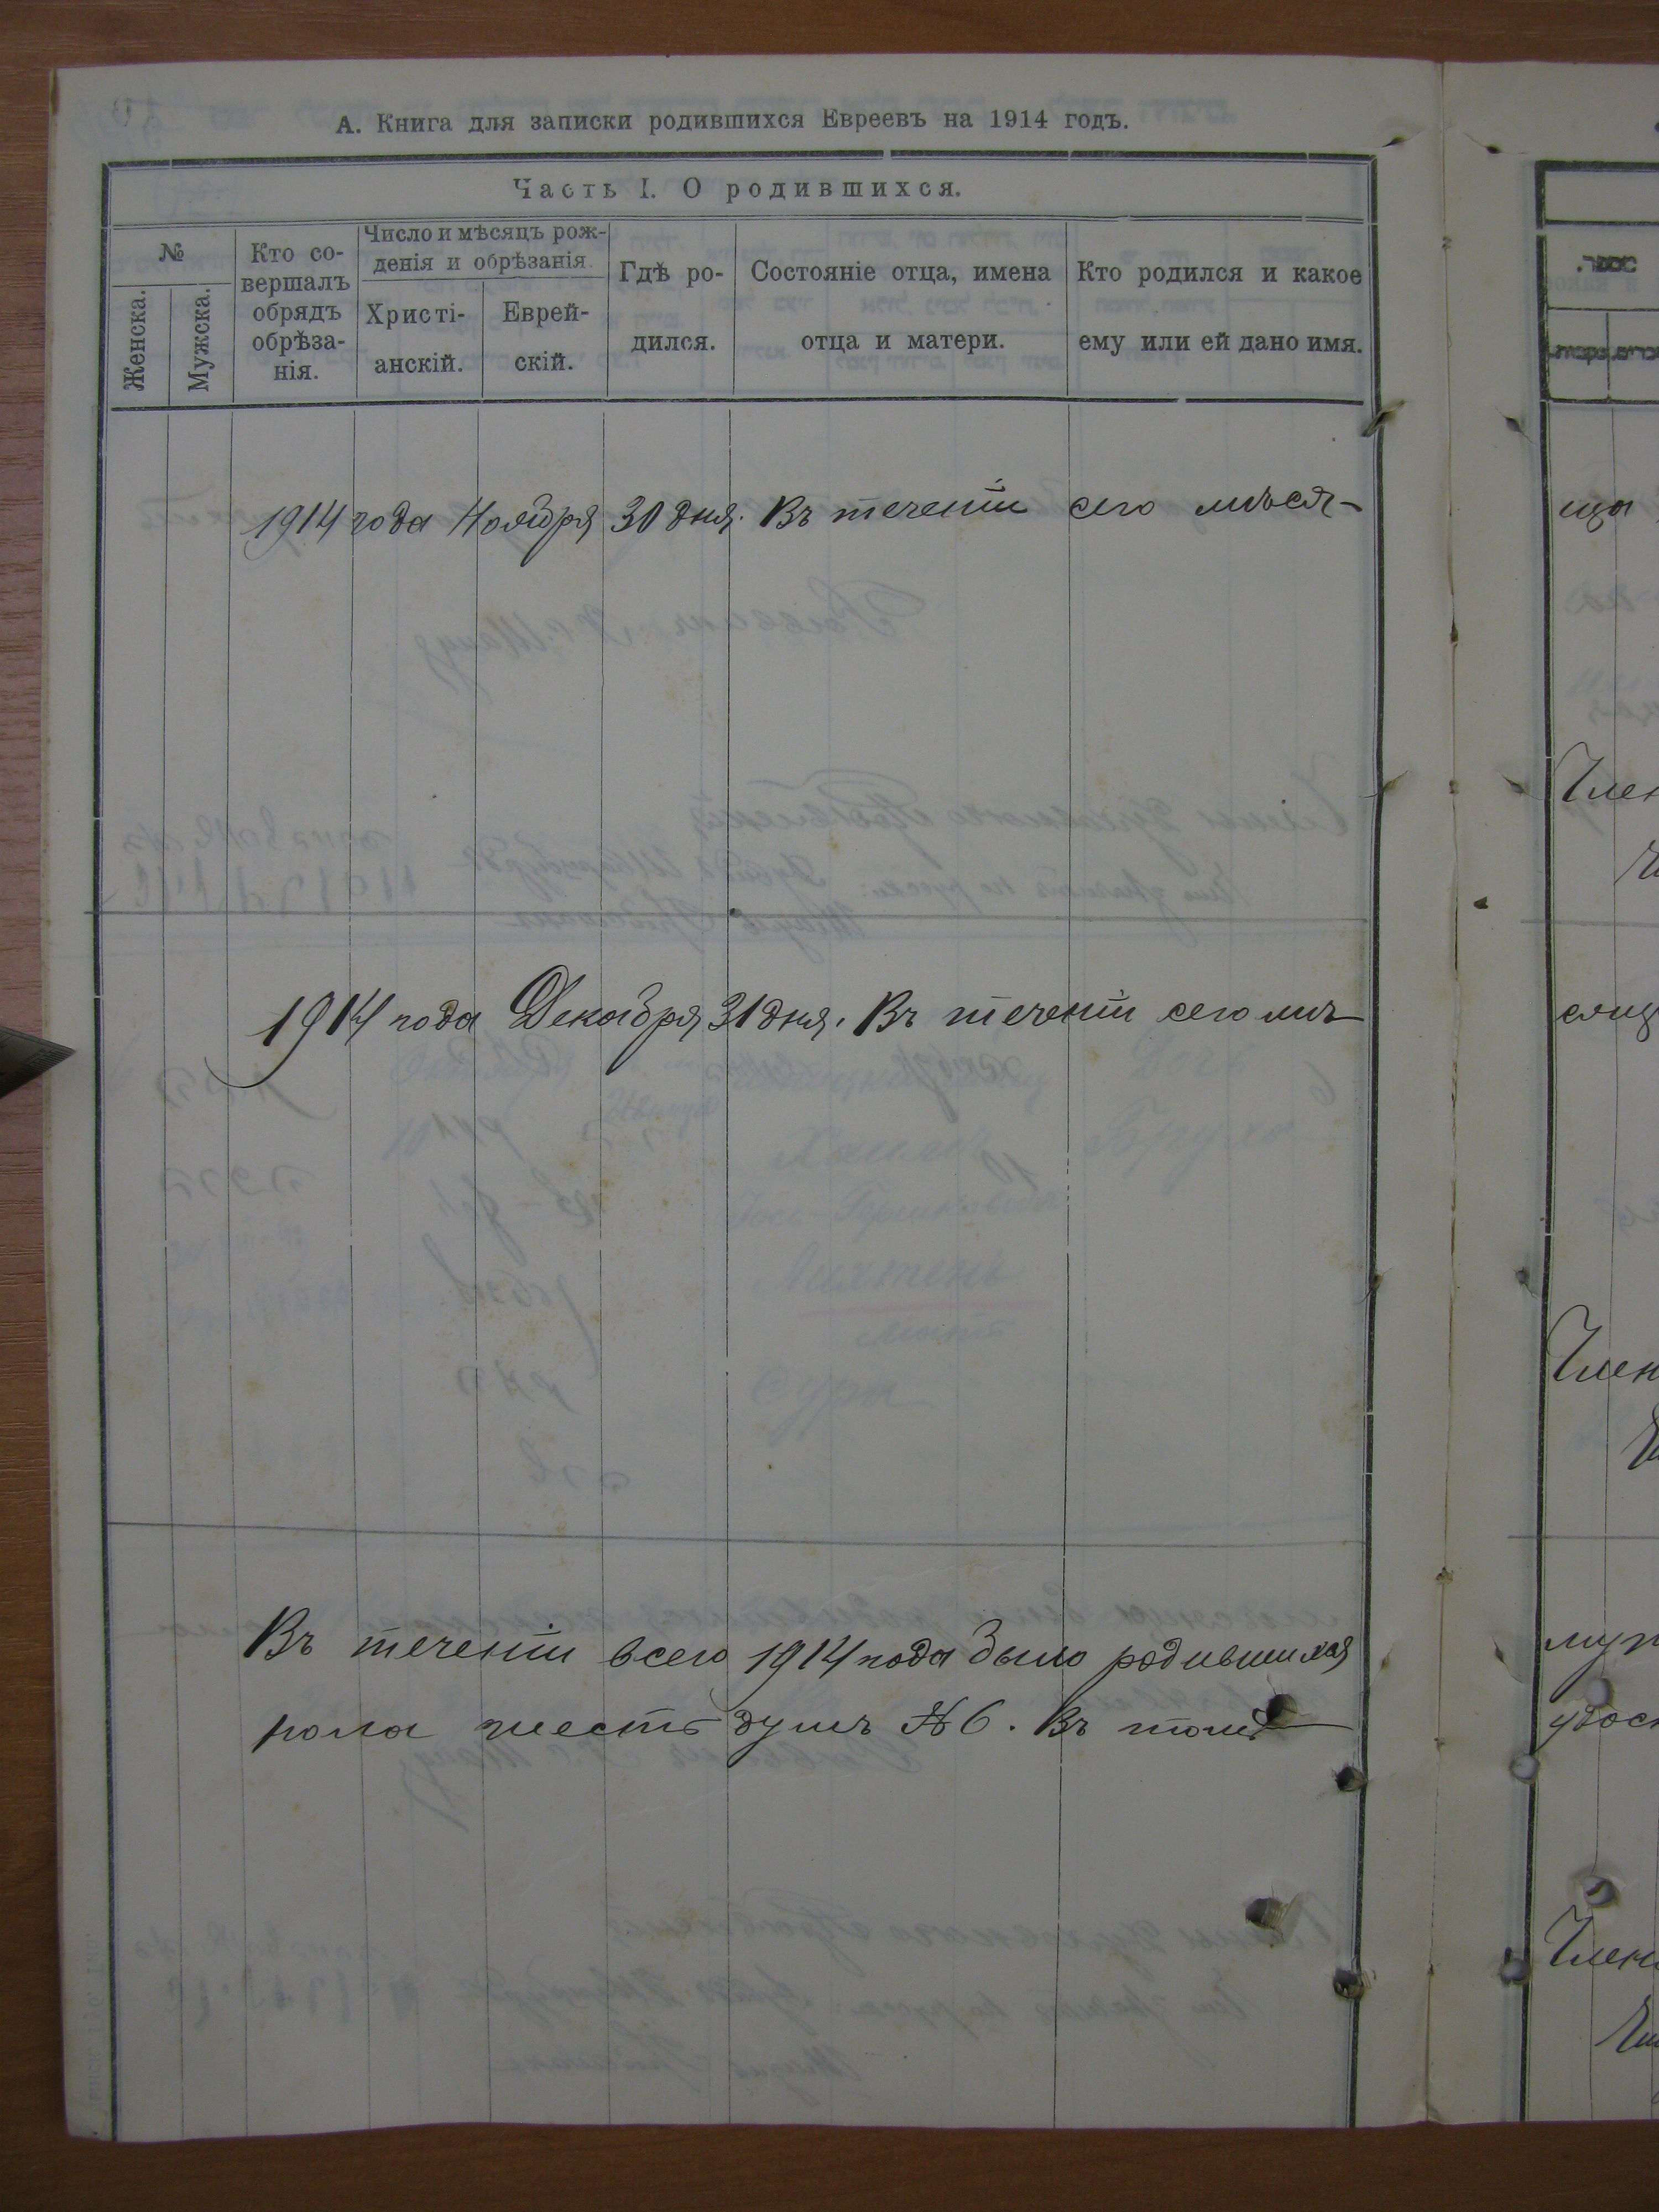 А. Книга для записки родившихся Евреевъ на 1914 годъ.
Часть I. О родившихся.
№
Женска.
Мужска.
Кто со-
вершалъ
обрядъ
обрѣза-
нія.
Число и мѣсяцъ рож-
денія и обрѣзанія.
Христі-
анскій.
Еврей-
скій.
Гдѣ ро-
дился.
Состояніе отца, имена
отца и матери.
Кто родился и какое
ему или ей дано имя.
1914 года Ноября 30 дня. Въ теченіи сего мѣся-
1914 года Декабря 31 дня. Въ теченіи сего мѣ
Въ теченіи всего 1914 года было родившихся
пола шесть душъ № 6. Въ томъ
ца
Член
Член
Член